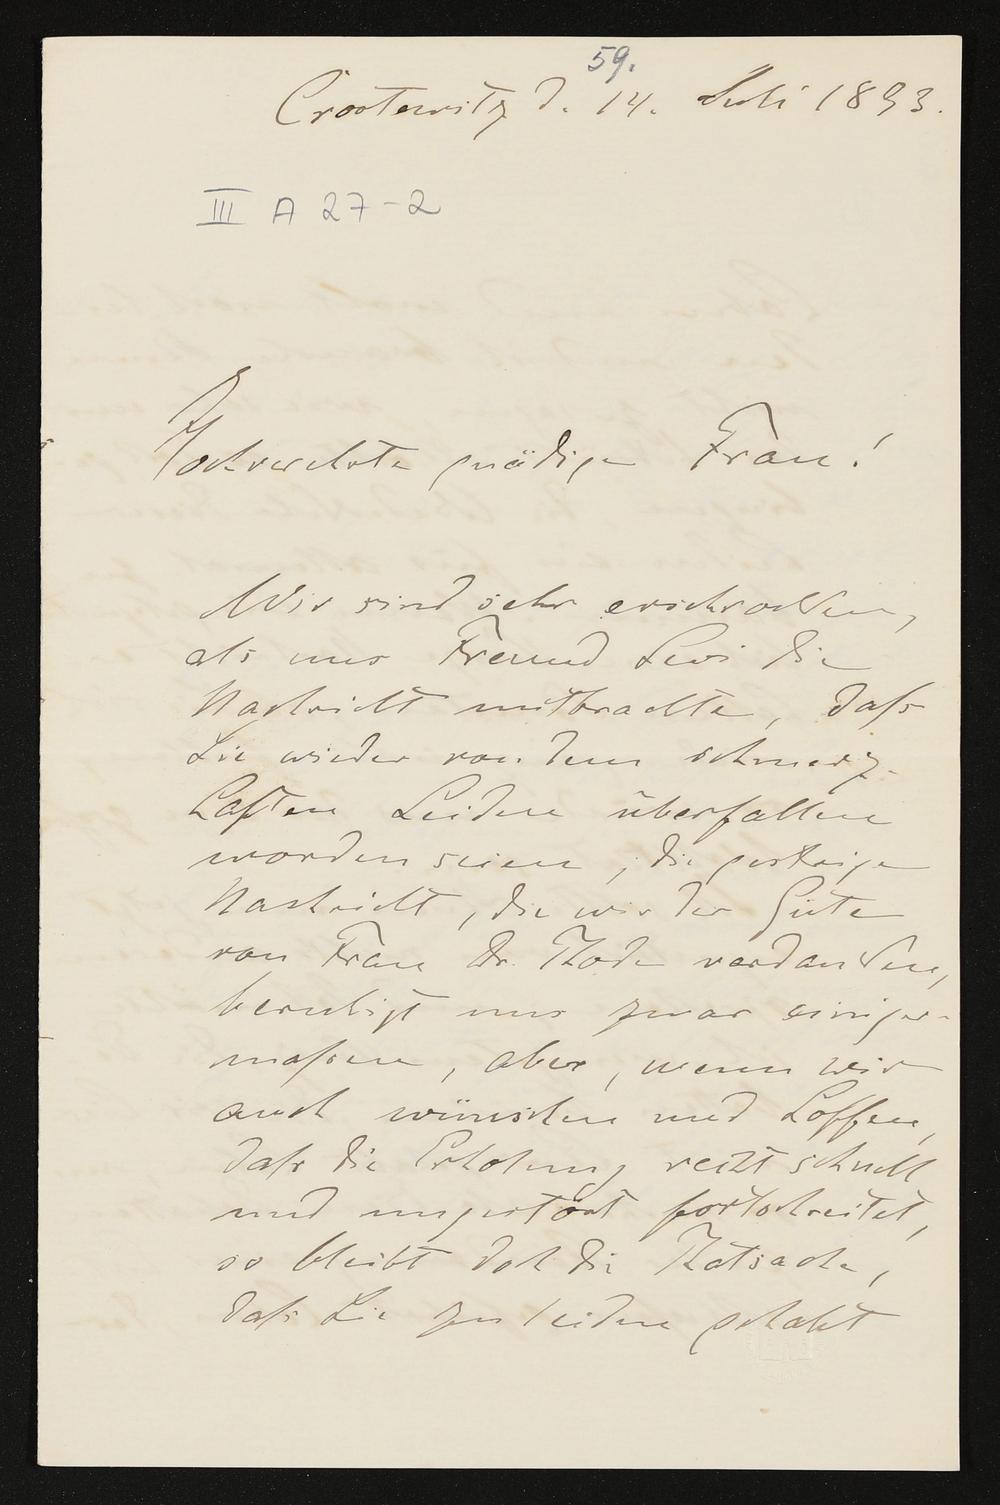 59.
Crostewitz d. 14. Juli 1893.
III A 27-2
Hochverehrte gnädige Frau!
Wir sind sehr erschrocken,
als uns Freund Levi die
Nachricht mitbrachte, daß
Sie wieder von dem schmerz-
haften Leiden überfallen
worden seien; die gestrige
Nachricht, die wir der Güte
von Frau Dr. Thode verdanken,
beruhigt uns zwar einiger-
maßen, aber, wenn wir
auch wünschen und hoffen,
daß die Erholung recht schnell
und ungestört fortschreitet,
so bleibt doch die Thatsache,
daß Sie zu leiden gehabt